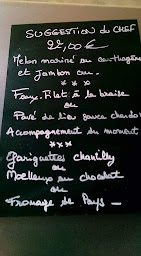 SUGGESTION du CHEF
22,00€
Melon mariné au
et Jambon cru.
***
Faux-Filet à la braise
ou
Pavé de lieu sauce chardo
Accompagnement du moment
***
Gariguettes chantilly
ou
Moelleux au chocolat
ou
Fromage de Pays